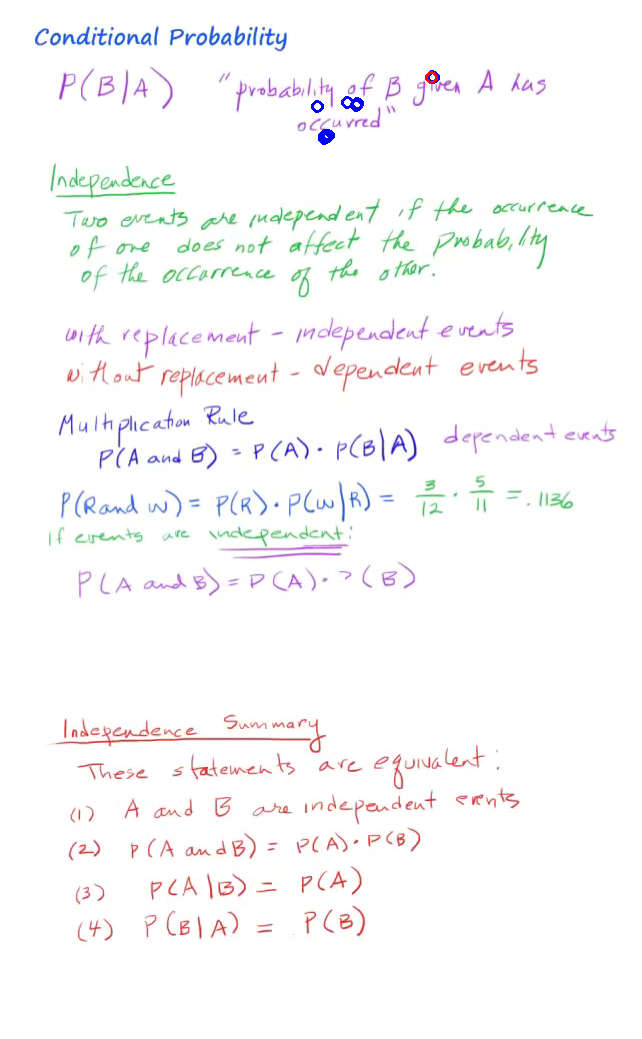 Conditional Probability
P(B|A) "probability of B given A has
occurred"
Independence
Two events are independent if the occurrence
of one does not affect the probability
of the occurrence of the other.
with replacement - independent events
without replacement - dependent events
Multiplication Rule
P(A and B) = P(A) · P(B|A) dependent events
P(R and W) = P(R) · P(W|R) = 3/12 · 5/11 = .1136
if events are independent:
P(A and B) = P(A) · P(B)
Independence Summary
These statements are equivalent:
(1) A and B are independent events
(2) P(A and B) = P(A) · P(B)
(3) P(A|B) = P(A)
(4) P(B|A) = P(B)